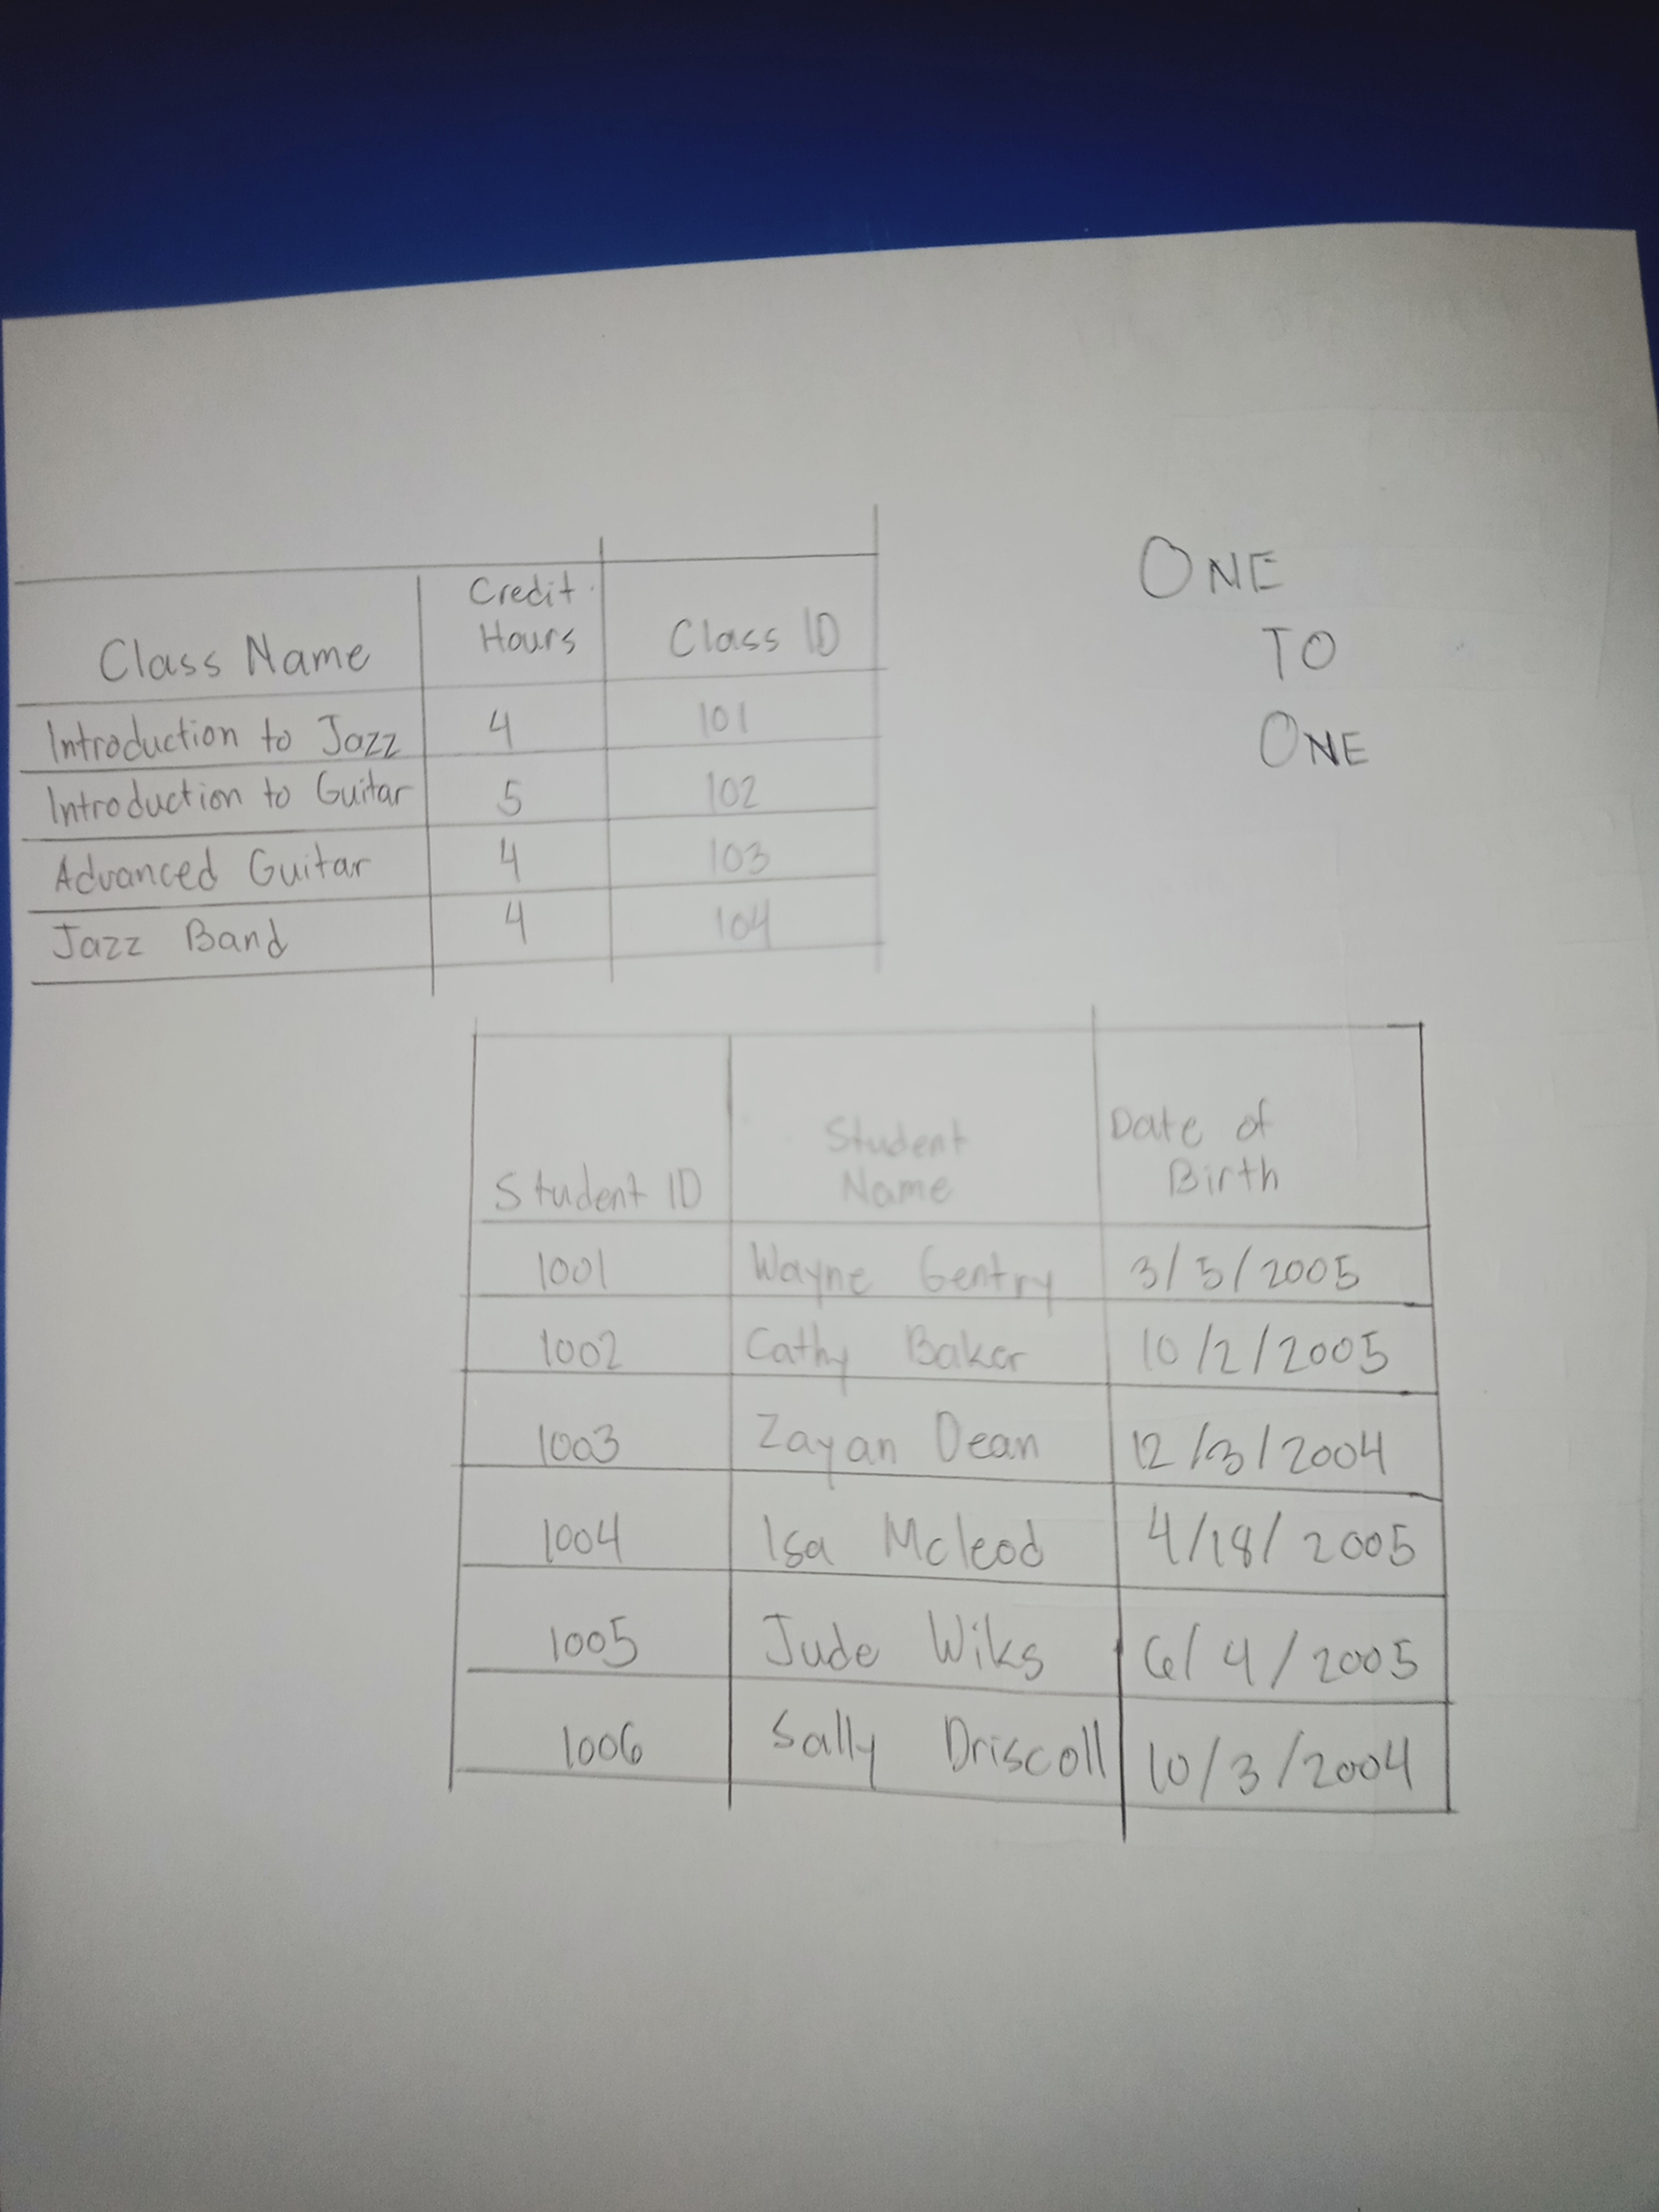 ONE
TO
ONE
Credit
Class Name Hours Class ID
Introduction to Jazz 4 101
Introduction to Guitar 5 102
Advanced Guitar 4 103
Jazz Band 4 104
Student Date of
Student ID Name Birth
1001 Wayne Gentry 3/5/2005
1002 Cathy Baker 10/2/2005
1003 Zayan Dean 12/3/2004
1004 Isa Mcleod 4/18/2005
1005 Jude Wiks 6/4/2005
1006 Sally Driscoll 10/3/2004